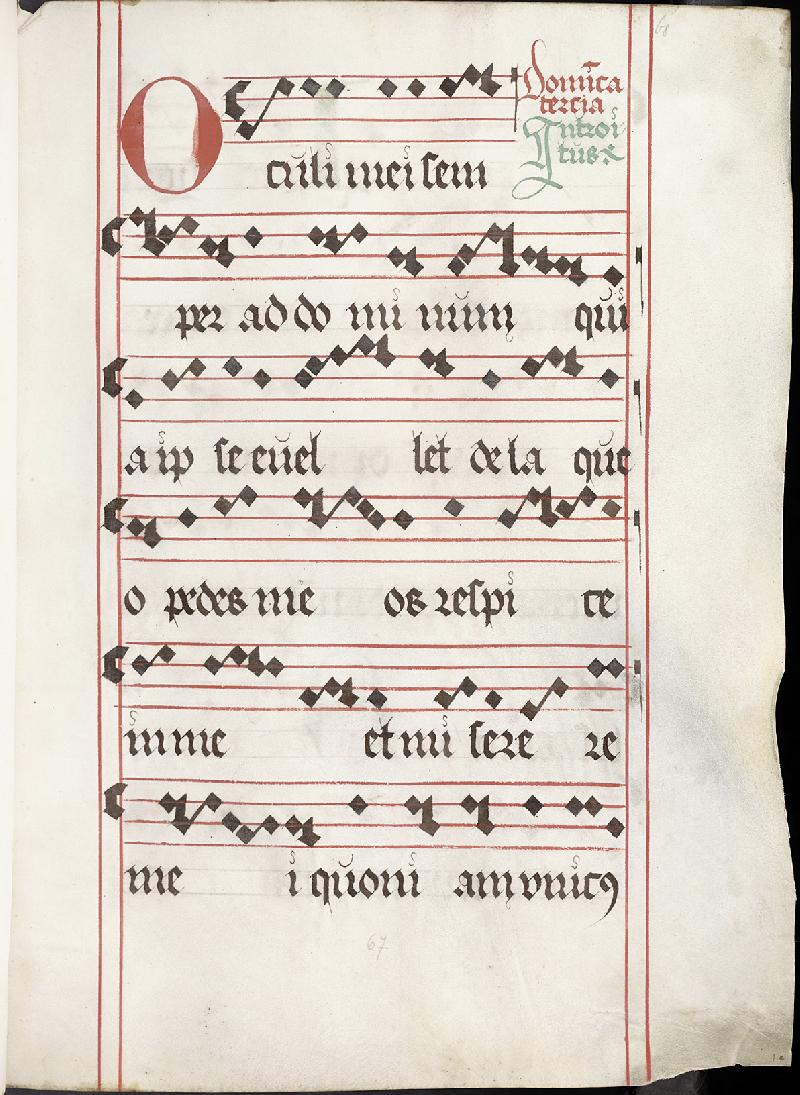 68
Domica
tercia
Introi
tus
Oculi mei sem
per ad do mi num qui
a ip se euel let de la que
o pedes me os respi ce
in me et mi sere re
me i quoni am vnicꝯ
67